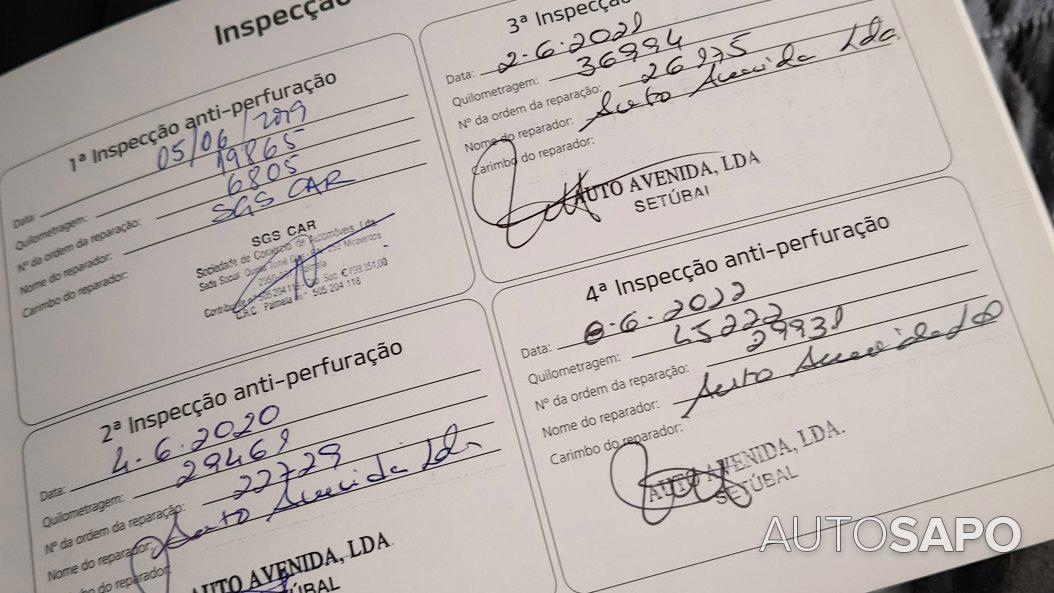 Inspecção
1ª Inspecção anti-perfuração
Data: 05/06/2019
Quilometragem: 19865
Nº da ordem da reparação: 6805
Nome do reparador: SGS CAR
Carimbo do reparador:
SGS CAR
Sociedade de Comércio de Automóveis, Lda
Sede Social: Quinta
2950 Palmela
Contribuinte nº 505 204 118 Soc. € 793.351,00
C.R.C. Palmela nº 505 204 118
2ª Inspecção anti-perfuração
Data: 4.6.2020
Quilometragem: 29461
Nº da ordem da reparação: 22729
Nome do reparador: Auto Avenida Lda.
Carimbo do reparador:
AUTO AVENIDA, LDA.
SETÚBAL
3ª Inspecção
Data: 2.6.2021
Quilometragem: 36994
Nº da ordem da reparação: 26975
Nome do reparador: Auto Avenida Lda.
Carimbo do reparador:
AUTO AVENIDA, LDA
SETÚBAL
4ª Inspecção anti-perfuração
Data: 6.6.2022
Quilometragem: 45222
Nº da ordem da reparação: 29931
Nome do reparador: Auto Avenida Ld
Carimbo do reparador:
AUTO AVENIDA, LDA.
SETÚBAL
AUTOSAPO